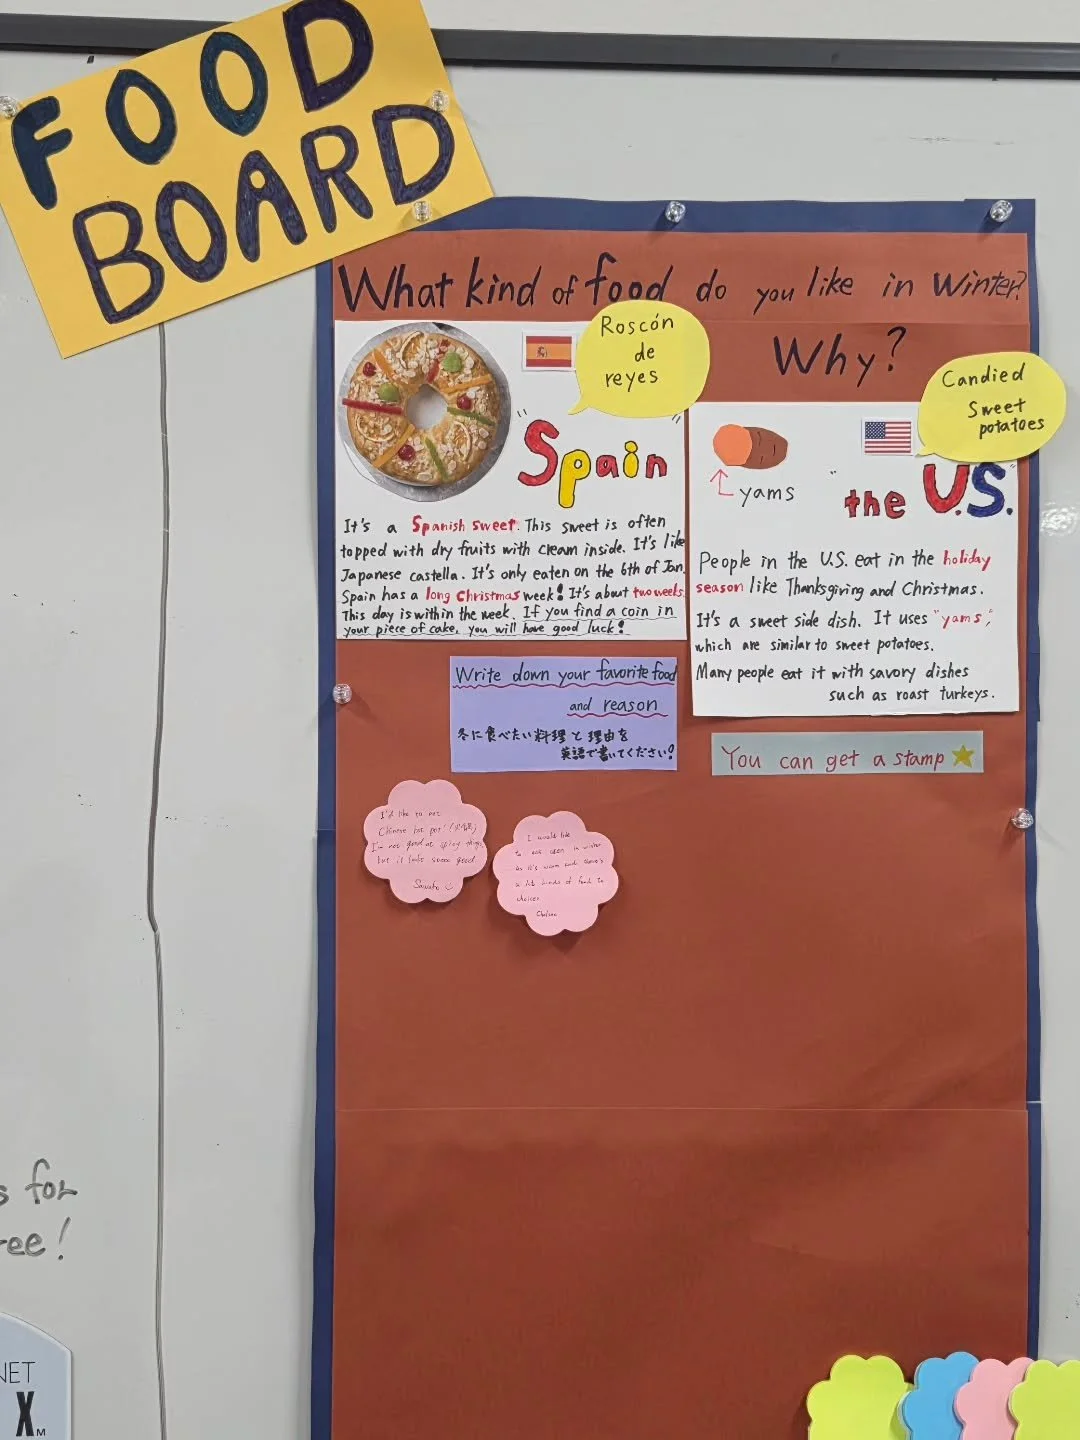 FOOD
BOARD
What kind of food do you like in Winter?
Why?
Roscón
de
reyes
"Spain"
It's a Spanish sweet. This sweet is often
topped with dry fruits with cream inside. It's like
Japanese castella. It's only eaten on the 6th of Jan.
Spain has a long Christmas week! It's about two weeks.
This day is within the week. If you find a coin in
your piece of cake, you will have good luck!
Candied
Sweet
potatoes
yams
"the U.S."
People in the U.S. eat in the holiday
season like Thanksgiving and Christmas.
It's a sweet side dish. It uses "yams",
which are similar to sweet potatoes.
Many people eat it with savory dishes
such as roast turkeys.
Write down your favorite food
and reason
冬に食べたい料理と理由を
英語で書いてください!
You can get a stamp
I'd like to eat
Chinese hot pot!
I'm not good at spicy things
but it looks soooo good
I would like
to eat oden in winter
as it's warm and there's
a lot kinds of food to
choices
Chelsea
s for
ree!
NET
X
M